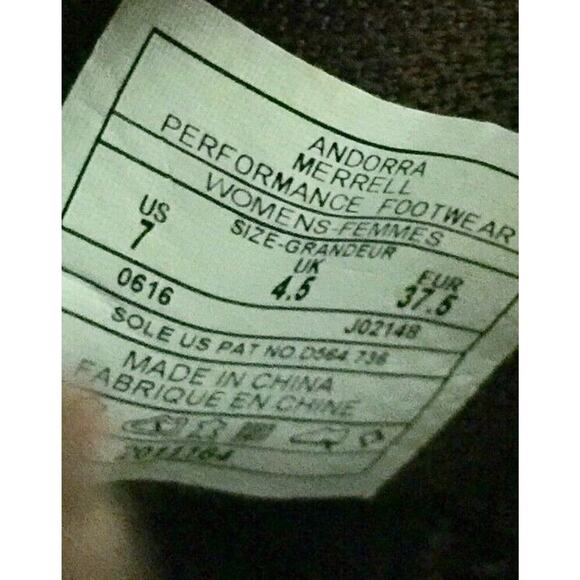 ANDORRA
MERRELL
PERFORMANCE FOOTWEAR
WOMENS-FEMMES
SIZE-GRANDEUR
US UK EUR
7 4.5 37.5
0616 J02148
SOLE US PAT NO.D564,736
MADE IN CHINA
FABRIQUE EN CHINE